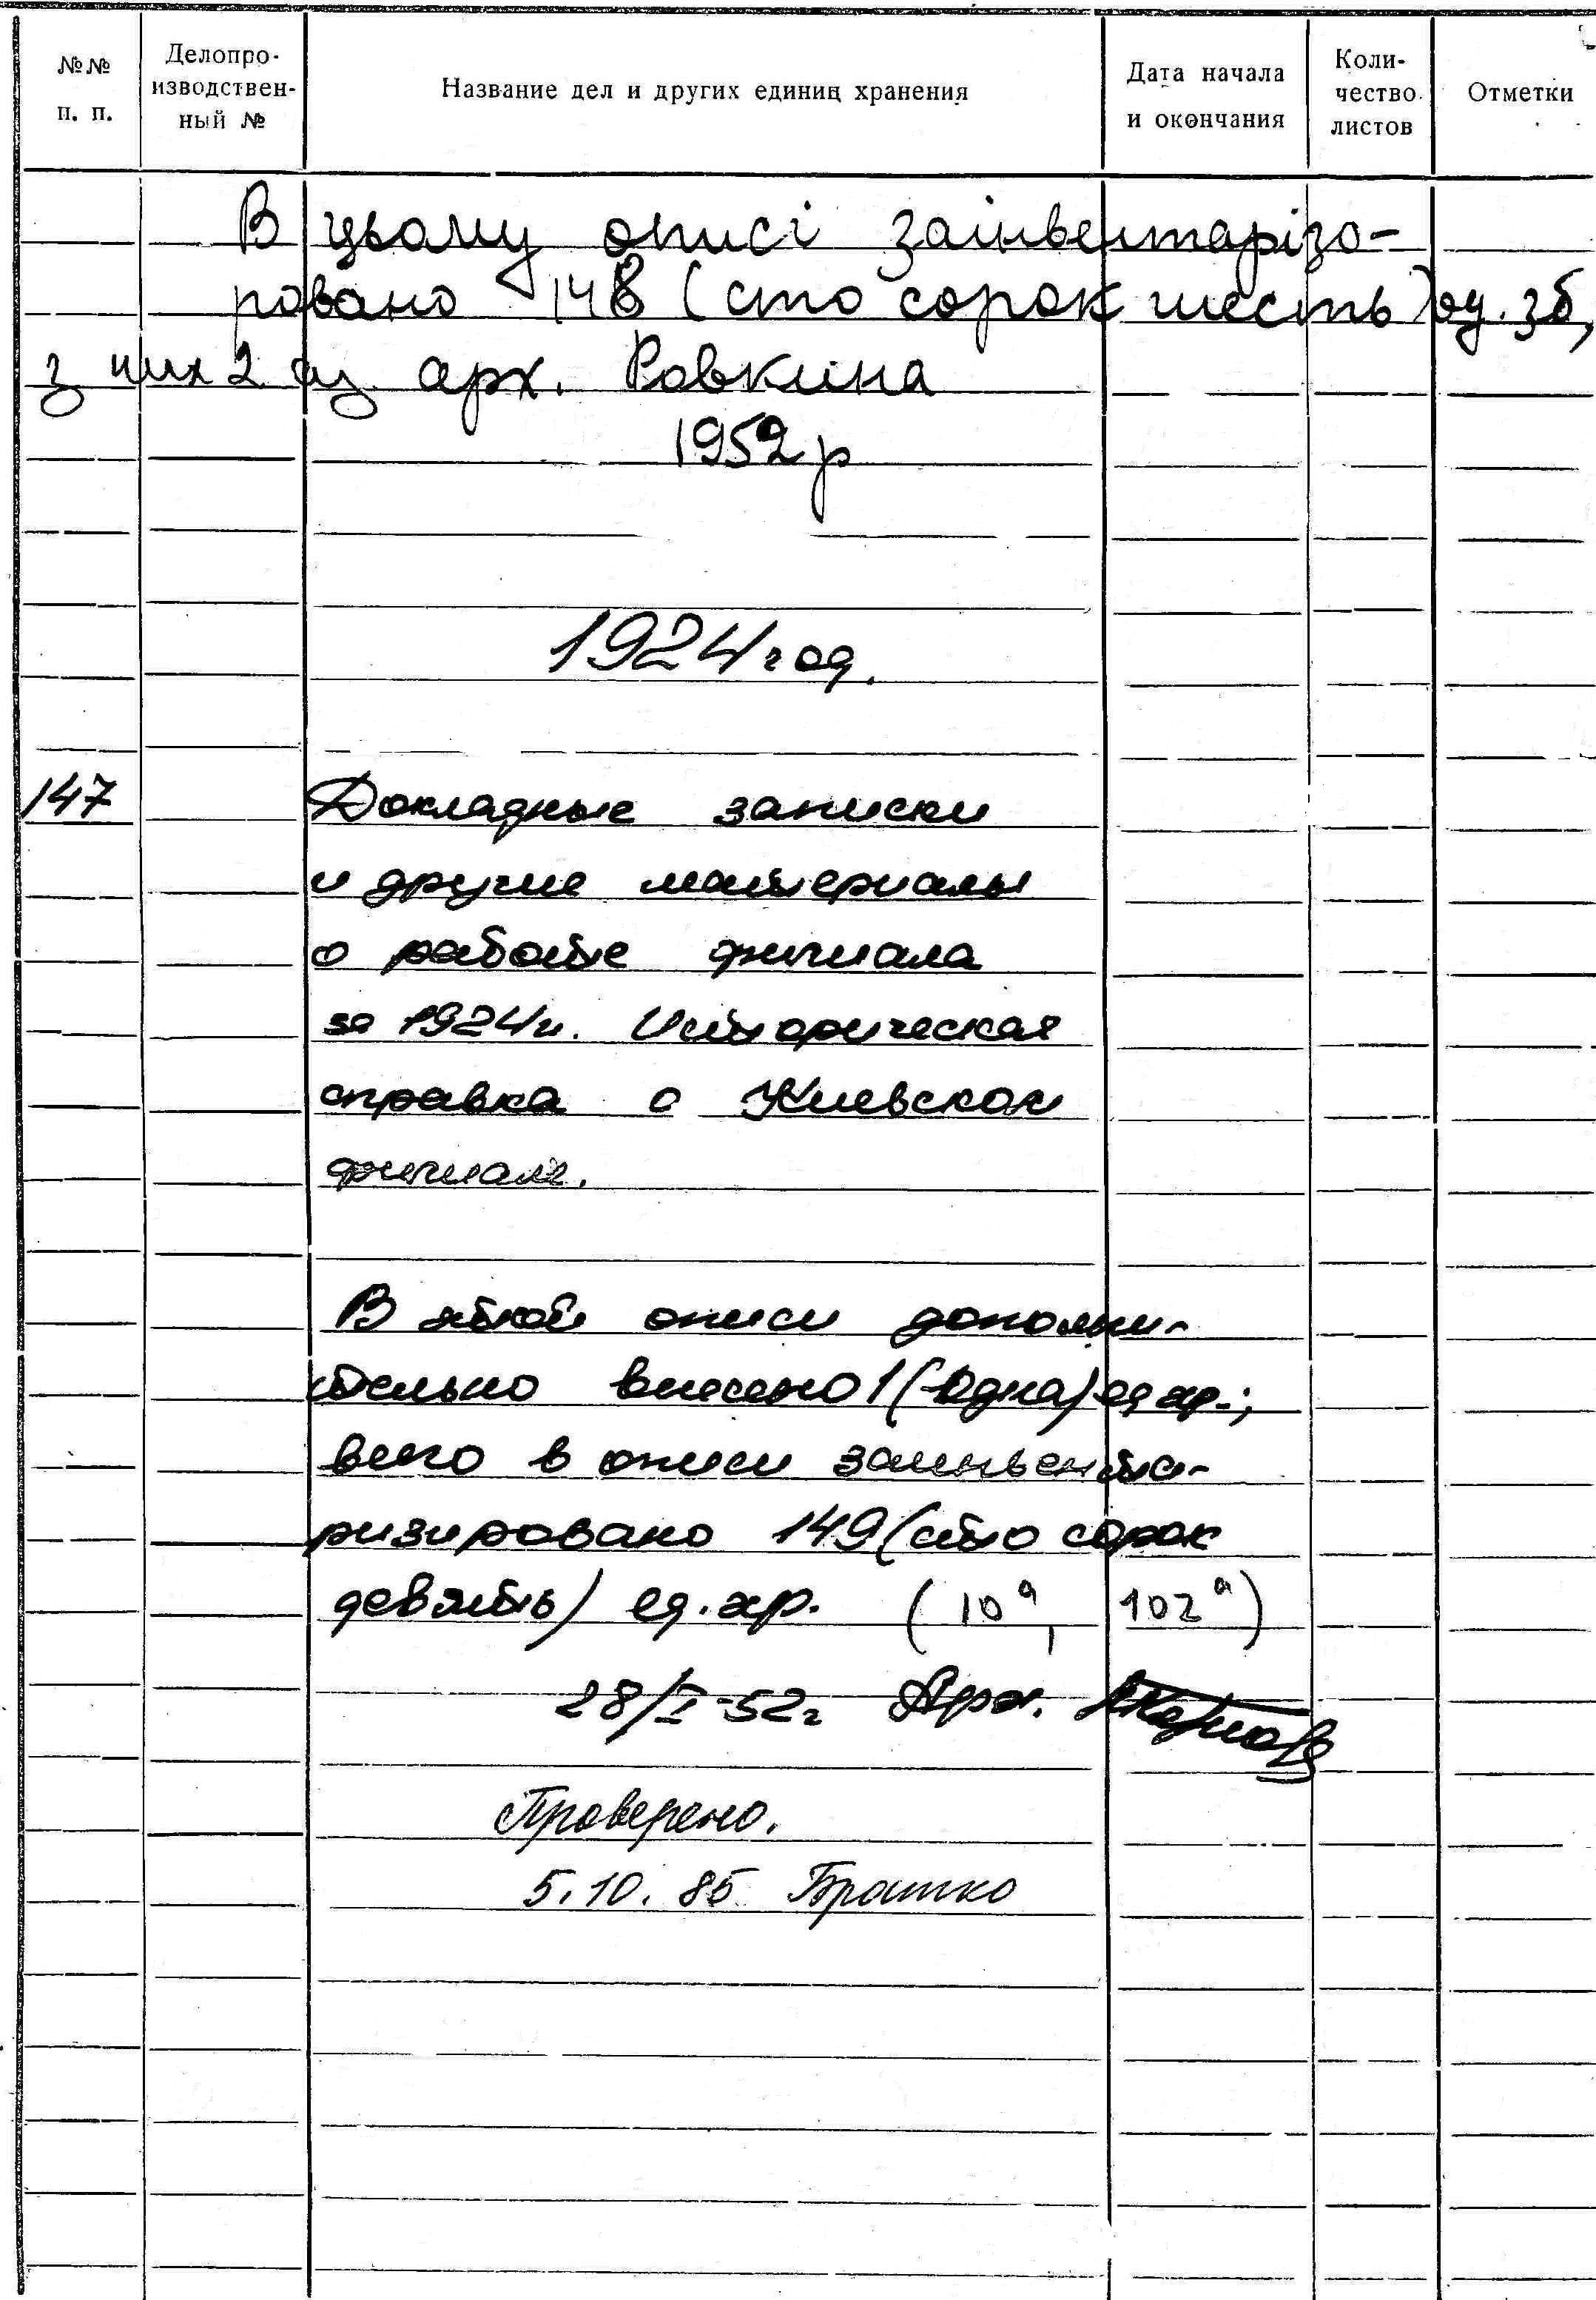 №№
п. п.
Делопро-
изводствен-
ный №
Название дел и других единиц хранения
Дата начала
и окончания
Коли-
чество
листов
Отметки
В цьому описі заінвентарізо-
ровано 148 (сто сорок шесть) од. зб,
з них 2 аз. арх. Ровкина
1952 р
1924 год.
147
Докладные записки
и другие материалы
о работе филиала
за 1924 г. Историческая
справка о Киевском
филиале.
В этой описи дополни-
тельно внесено 1 (Одна) ед хр.;
всего в описи заинвента-
ризировано 149 (сто сорок
девять) ед. хр. (10а, 102а)
28/I-52г Арх.
Проверено.
5.10.85 Братко